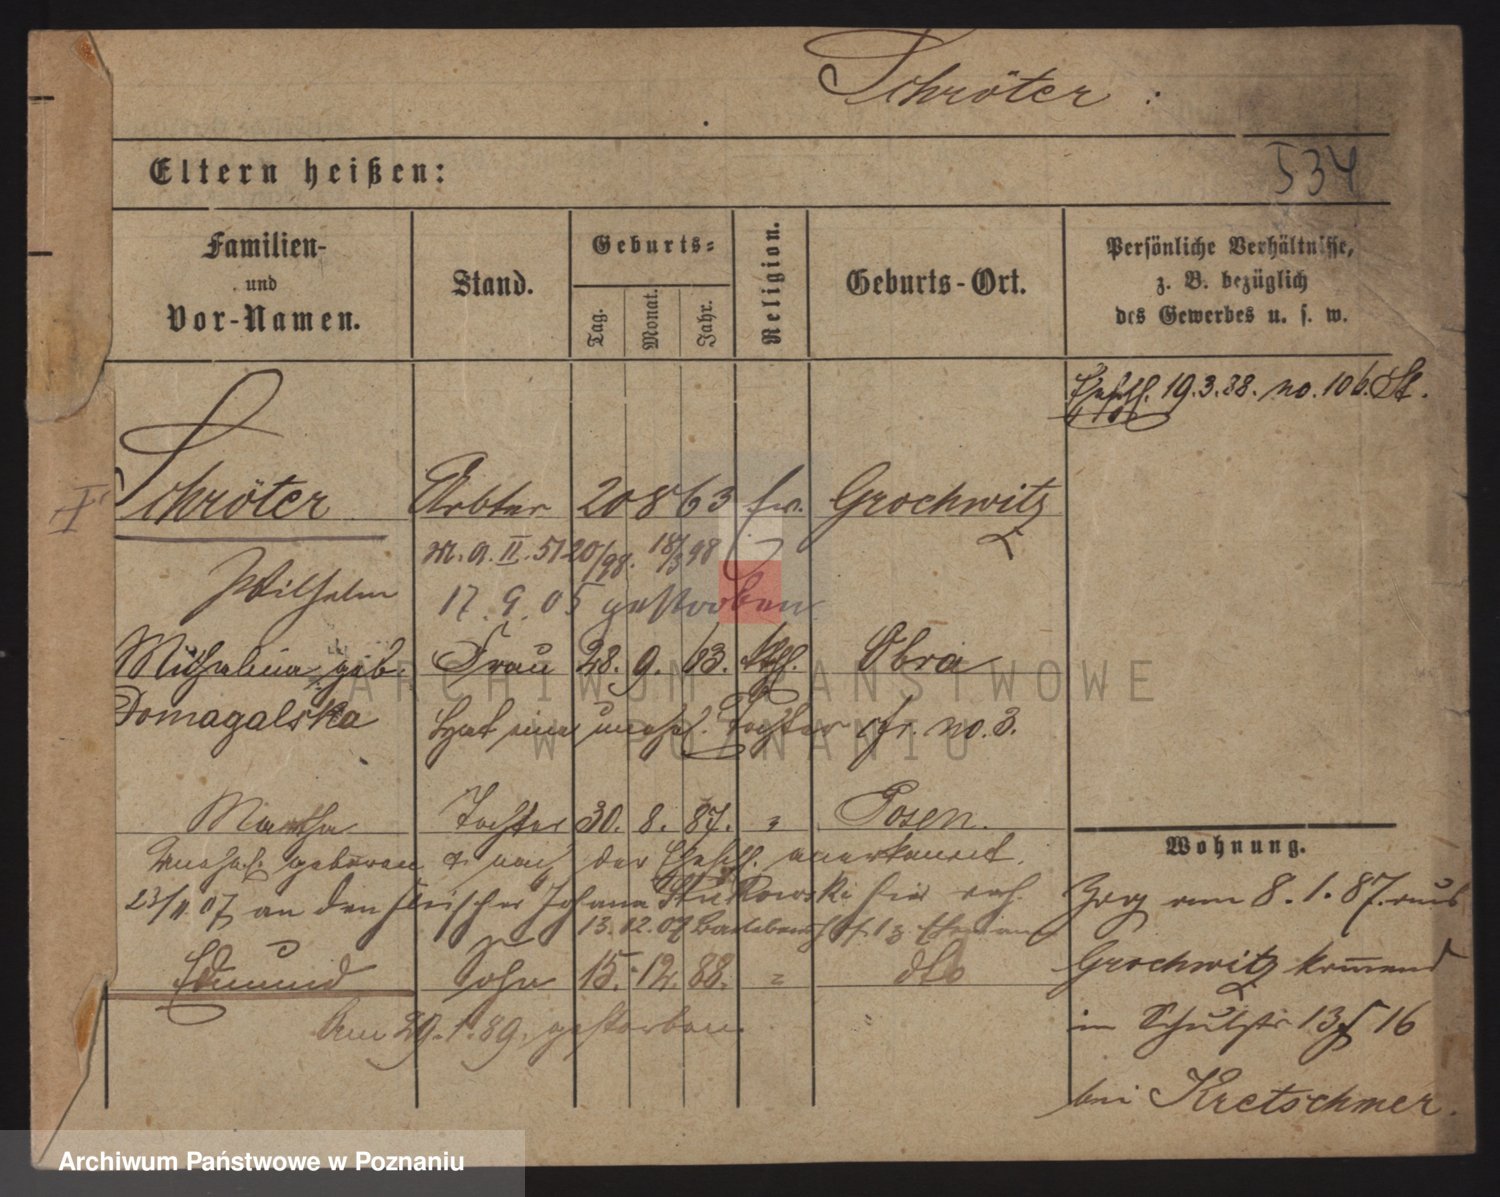 Schröter
534
Eltern heißen:
Familien-
und
Vor-Namen.
Stand.
Geburts-
Tag.
Monat.
Jahr.
Religion.
Geburts-Ort.
Persönliche Verhältnisse,
z. B. bezüglich
des Gewerbes u. s. w.
Eheschl. 19.3.88. no. 106. St.
I
Schröter Arbter 20 8 63 ev. Grochwitz
M. A. II. 51 20/98. 18/3 98
Wilhelm
17. 9. 05 gestorben
Michalina geb. Frau 28. 9. 63. kth. Obra
Domagalska
Hat eine unehel. Tochter cfr. no. 3.
Martha Tochter 30. 8. 87. " Posen.
Unehel. geboren & nach der Eheschl. anerkannt.
23/11 07 an den Fleischer Johann hier verh.
13. 12. 07
Edmund Sohn 15. 12. 88. " dto
Am 29. 1. 89. gestorben.
Wohnung.
Zzg am 8. 1. 87. aus
Grochwitz kommend
in Schulstr 13 16
bei Kretschmer.
ARCHIWUM PAŃSTWOWE
W POZNANIU
Archiwum Państwowe w Poznaniu